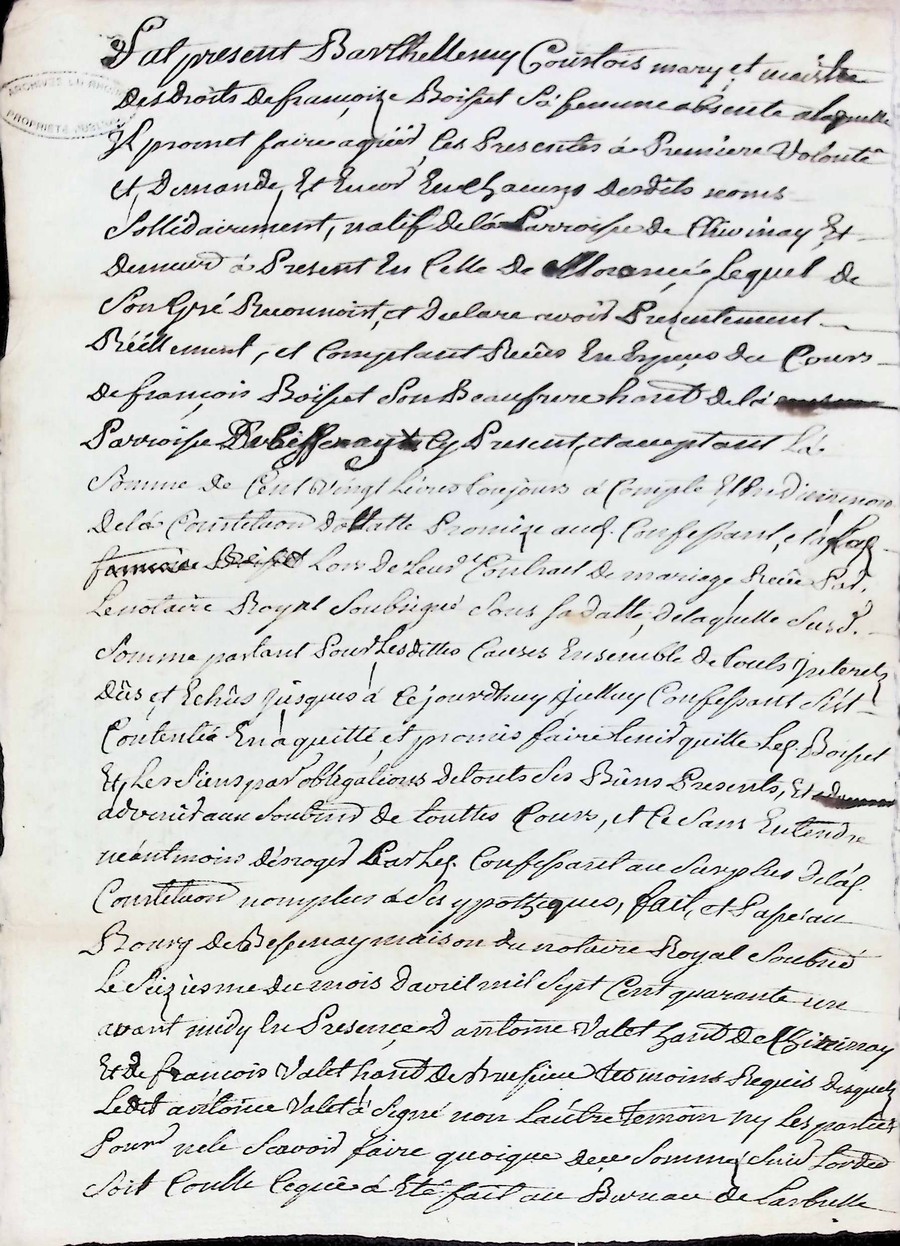 ARCHIVES DU RHONE
PROPRIETE PUBLIQUE
fut present Barthellemy Courtois mary et maistre
des droits de françoize Boisset sa femme absente a laquelle
Il promet faire agréer les Presentes à Premiere Volonté
et Demande, Et Encor En chacuns desdits noms
Sollidairement, natif de la Parroisse de Chivinay Et
demeurt à Present En Celle de Morancé lequel de
Son Gré Reconnoist, et declare avoir Presentement
Réellement, et Comptant Reçus En Especes du Cours
de françois Boisset Son Beaufrere habt de la
Parroisse De Bessenay Cy Present, et acceptant La
Somme de Cent Vingt Livres toujours à Compte Et En diminuon
de la Constituon dotalle Promize aud. Confessant, et à lad.
françoize Boisset Lors de Leur Contrait de mariage Receu Par
Le notaire Royal Soubsigné Sous sa datte, de laquelle Surd.
Somme partant Pour Lesdittes Causes Ensemble de touts Interets
dûs et Echûs Jusques à Cejourdhuy Icelluy Confessant S'est
Contenté En a quitté, et promis faire tenir quitte Led. Boisset
Et, Les Siens par obligations de touts Ses Biens Presents, Et
advenir aux Soubmd de touttes Cours, et Ce Sans Entendre
néantmoins déroger Par Led. Confessant au Surplus de lad.
Constituon nomplus à Ses ypotheques, fait, et Passé au
Bourg de Bessenay maison du notaire Royal Soubné
Le Seiziesme du mois davril mil Sept Cent quarante un
avant midy En Presence, D'antoine Valet habt de Chivinay
Et de francois Valet habt de Tesmoins Requis desquels
Ledit antoine Valet à Signé non L'autre temoin ny Les parties
Pour ne le Scavoir faire quoique de ce Sommé Suivt Lordce
Soit Conllé Ce que à Eté fait au Bureau de Larbrelle